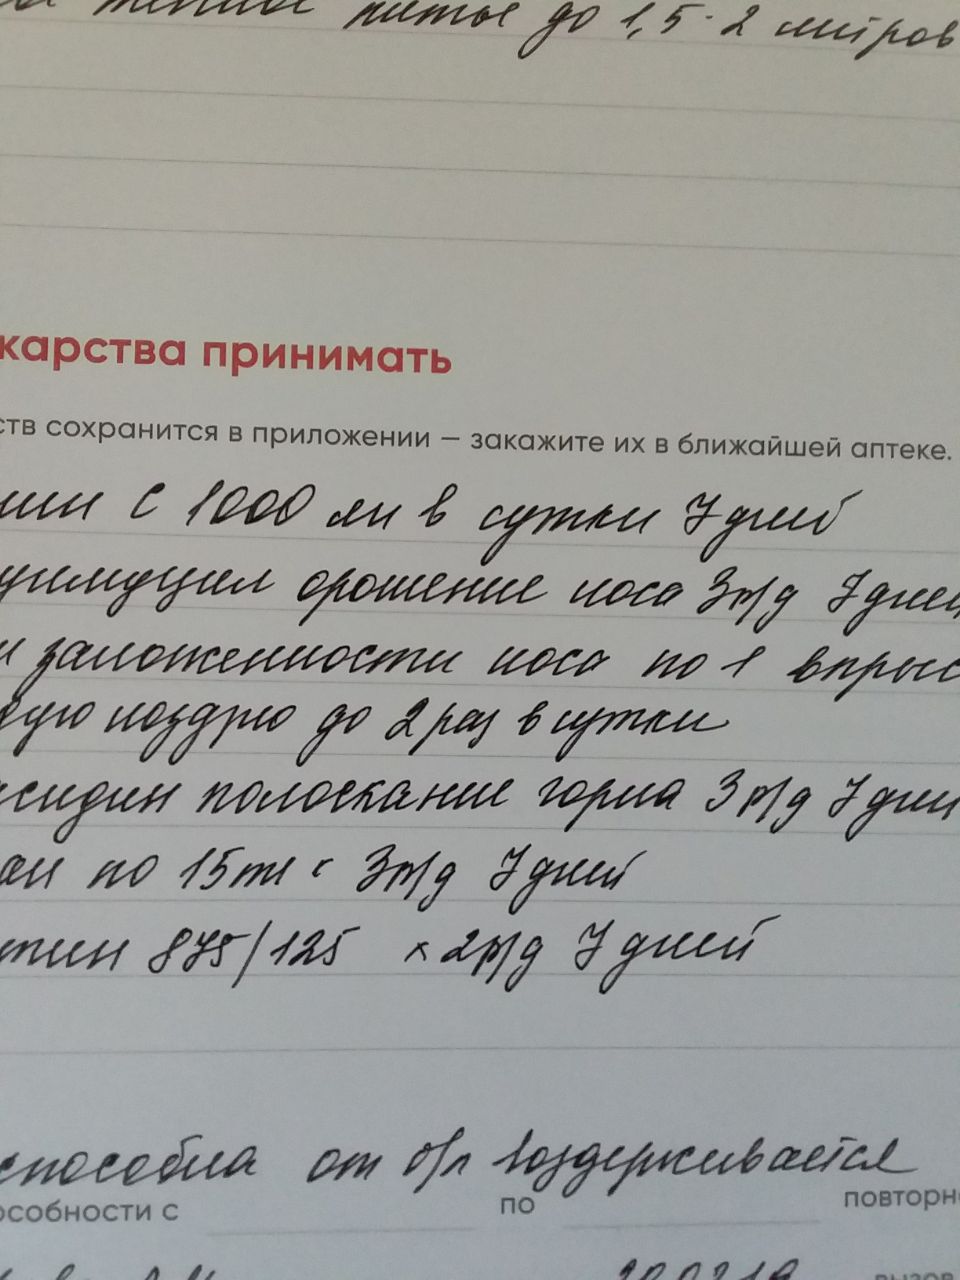 теплое питье до 1,5-2 литров
карства принимать
ств сохранится в приложении — закажите их в ближайшей аптеке.
мин С 1000 мг в сутки 7 дней
орошение носа 3р/д 7 дней
и заложенности носа по 1 впрыс
ную ноздрю до 2 раз в сутки
сидин полоскание горла 3 р/д 7 дней
по 15 мл х 3р/д 7 дней
тин 875/125 х 2р/д 7 дней
способна от б/л воздерживается
особности с по повторн